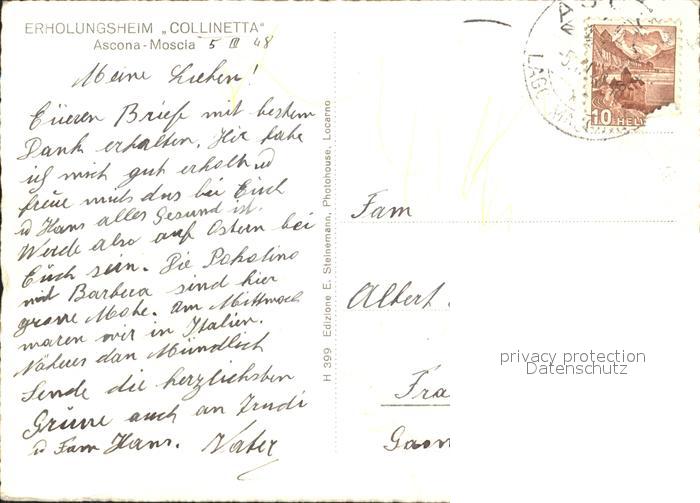 ERHOLUNGSHEIM „COLLINETTA"
Ascona-Moscia 5 III 48
Meine Lieben!
Eüeren Brief mit bestem
Dank erhalten. Hir habe
ich mich gut erholt u
freue mich das bei Eüch
u Hans alles Gesund ist.
Werde also auf Ostern bei
Eüch sein. Die
mit Barbeca sind hier
grosse Mode. Am Mittwoch
waren wir in Italien.
Näheres dan Mündlich
Sende die herzlichsten
Grüsse auch an Trudi
u Fam Hans. Vater
H 399 Edizione E. Steinemann, Photohouse, Locarno
Fam
Albert
Fra
Gasm
10 HELV
LAGO MA
privacy protection
Datenschutz